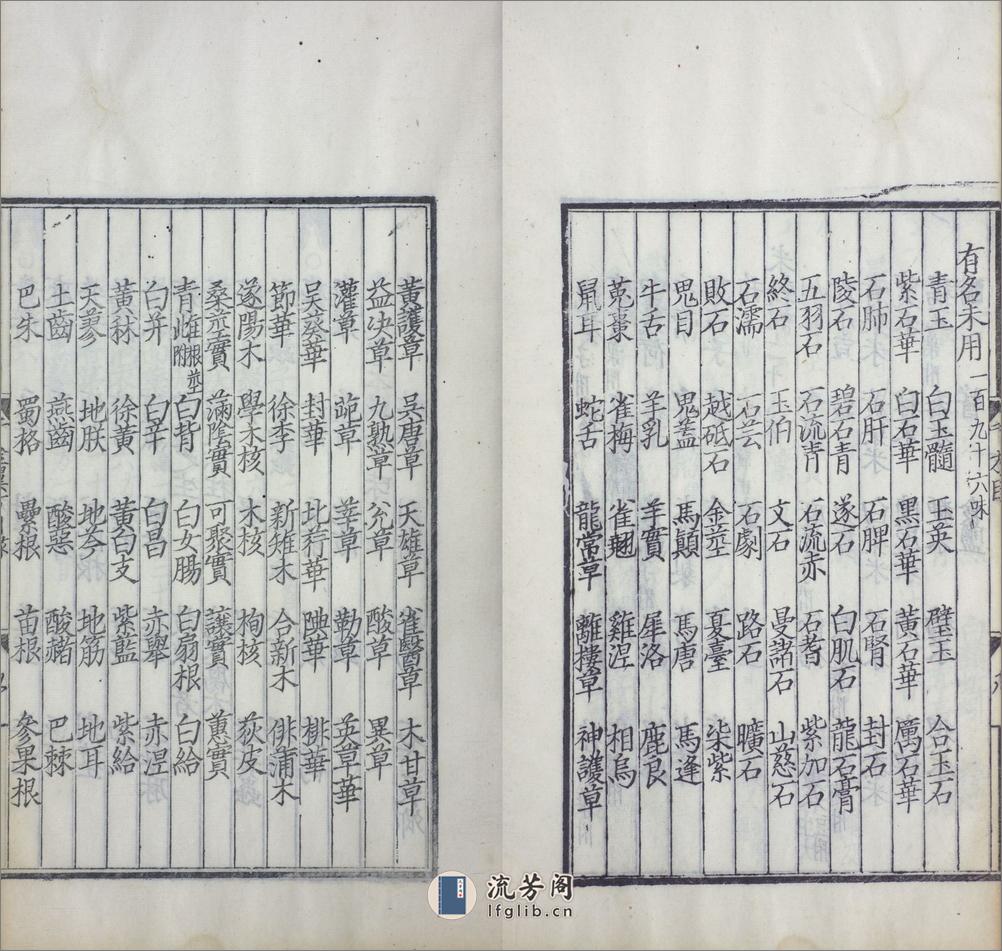 有名未用一百九十六味
青玉 白玉髓 玉英 璧玉 合玉石
紫石華 白石華 黑石華 黃石華 厲石華
石肺 石肝 石脾 石腎 封石
陵石 碧石青 遂石 白肌石 龍石膏
五羽石 石流青 石流赤 石耆 紫加石
終石 玉伯 文石 曼諸石 山慈石
石濡 石芸 石劇 路石 曠石
敗石 越砥石 金莖 夏臺 柒紫
鬼目 鬼蓋 馬顛 馬唐 馬逢
牛舌 羊乳 羊實 犀洛 鹿良
菟棗 雀梅 雀翹 雞涅 相烏
鼠耳 蛇舌 龍常草 離樓草 神護草
黃護草 吳唐草 天雄草 雀醫草 木甘草
益決草 九熟草 兊草 酸草 異草
灌草 茈草 莘草 勒草 英草華
吳葵華 封華 北荇華 陳華 棑華
節華 徐李 新雉木 合新木 俳蒲木
遂陽木 學木核 木核 栒核 荻皮
桑莖實 滿陰實 可聚實 讓實 蕙實
青雌 白背 白女腸 白扇根 白給
根莖附
白并 白辛 白昌 赤舉 赤涅
黃秫 徐黃 黃白支 紫藍 紫給
天蓼 地朕 地芩 地筋 地耳
土齒 燕齒 酸惡 酸赭 巴棘
巴朱 蜀格 纍根 苗根 參果根
流芳阁
lfglib.cn